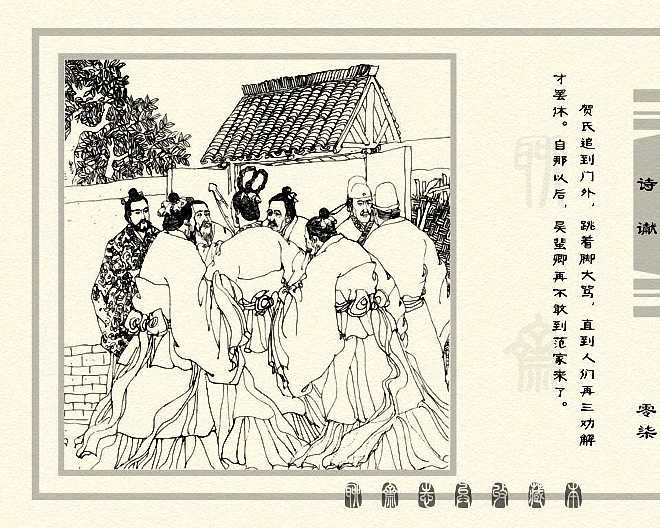 贺氏追到门外，跳着脚大骂，直到人们再三劝解
才罢休。自那以后，吴蜚卿再不敢到范家来了。
诗谳
零柒